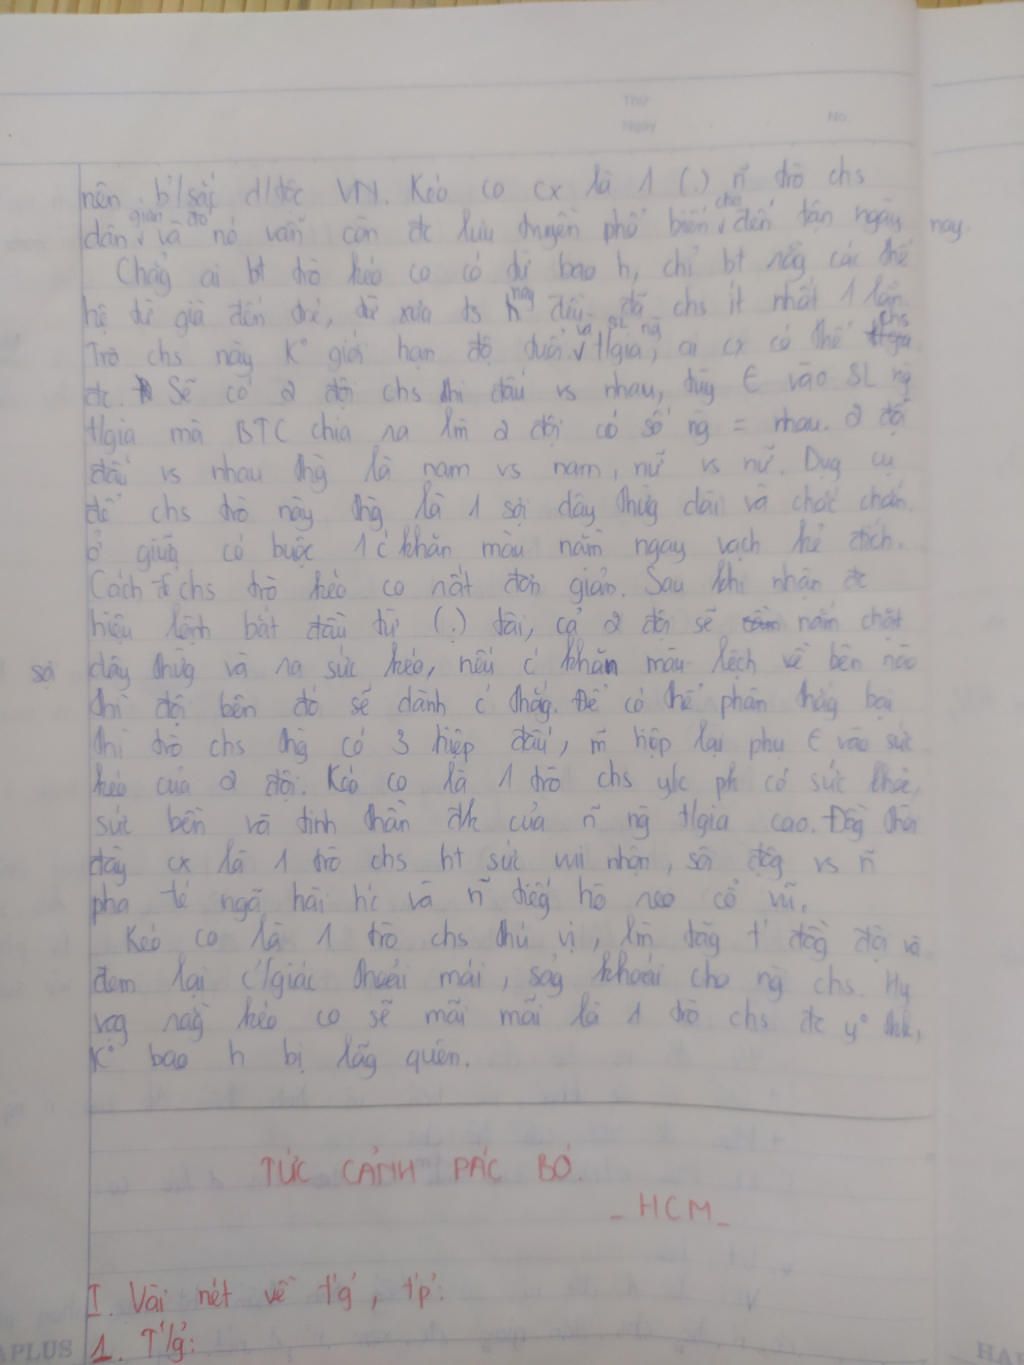 Thứ
Ngày
No
nên b/sắc d/tộc VN. Kéo co cx là 1 (.) ñ trò chs
dân gian và đó nó vẫn còn đc lưu truyền phổ biến cho đến tận ngày nay.
Chẳg ai bt trò kéo co có từ bao h, chỉ bt rằg các thế
hệ từ già đến trẻ, từ xưa ts nay đều đã chs ít nhất 1 lần.
Trò chs này K° giới hạn độ tuổi và SL ng t/gia, ai cx có thể chs
đc. Sẽ có 2 đội chs thi đấu vs nhau, tùy € vào SL ng
t/gia mà BTC chia ra lm 2 đội có số ng = nhau. 2 đội
đấu vs nhau thg là nam vs nam, nữ vs nữ. Dụg cụ
để chs trò này thg là 1 sợi dây thừg dài và chắc chắn.
Ở giữa có buộc 1 c khăn màu nằm ngay vạch kẻ đích.
Cách chs trò kéo co rất đơn giản. Sau khi nhận đc
hiệu lệnh bắt đầu từ (.) tài, cả 2 đội sẽ nắm chặt
sợi dây thừg và ra sức kéo, nếu c khăn màu lệch về bên nào
thì đội bên đó sẽ dành c thắg. Để có thể phân thắg bại
thì trò chs thg có 3 hiệp đấu, m hiệp lại phụ € vào sức
kéo của 2 đội. Kéo co là 1 trò chs y/c pk có sức khỏe,
sức bền và tinh thần đk của ñ ng t/gia cao. Đồg thời
đây cx là 1 trò chs ht sức vui nhộn, sôi độg vs ñ
pha té ngã hài hc và ñ tiếg hò reo cổ vũ.
Kéo co là 1 trò chs thú vị, lm tăg t' đồg đội và
đem lại c/giác thoải mái, sảg khoái cho ng chs. Hy
vọg rằg kéo co sẽ mãi mãi là 1 trò chs đc y° thk,
K° bao h bị lãg quên.
TỨC CẢNH PÁC BÓ.
_ HCM _
I. Vài nét về t'g', t'p':
1. T'/g':
APLUS
HA